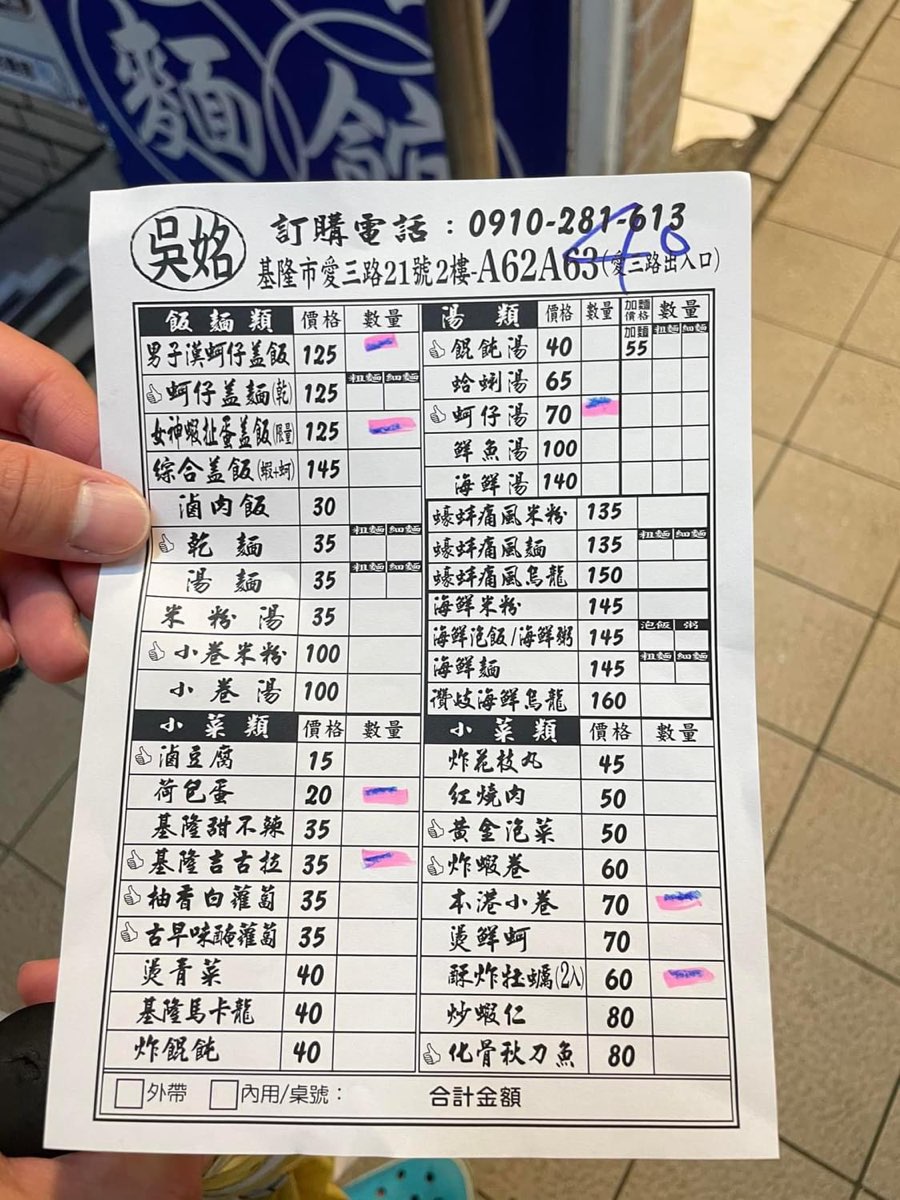 麵 館
吳姳
訂購電話：0910-281-613
基隆市愛三路21號2樓-A62A63(愛三路出入口)
飯麵類 價格 數量
男子漢蚵仔盖飯 125
蚵仔盖麵(乾) 125 粗麵 細麵
女神蝦扯蛋盖飯(限量) 125
綜合盖飯(蝦+蚵) 145
滷肉飯 30
乾麵 35 粗麵 細麵
湯麵 35 粗麵 細麵
米粉湯 35
小卷米粉 100
小卷湯 100
湯類 價格 數量 加麵價格 數量
餛飩湯 40 加麵55 粗麵 細麵
蛤蜊湯 65
蚵仔湯 70
鮮魚湯 100
海鮮湯 140
蠔蚌痛風米粉 135
蠔蚌痛風麵 135 粗麵 細麵
蠔蚌痛風烏龍 150
海鮮米粉 145
海鮮泡飯/海鮮粥 145 泡飯 粥
海鮮麵 145 粗麵 細麵
讚歧海鮮烏龍 160
小菜類 價格 數量
滷豆腐 15
荷包蛋 20
基隆甜不辣 35
基隆吉古拉 35
柚香白蘿蔔 35
古早味醃蘿蔔 35
燙青菜 40
基隆馬卡龍 40
炸餛飩 40
小菜類 價格 數量
炸花枝丸 45
紅燒肉 50
黃金泡菜 50
炸蝦卷 60
本港小卷 70
燙鮮蚵 70
酥炸牡蠣(2入) 60
炒蝦仁 80
化骨秋刀魚 80
外帶 內用/桌號： 合計金額